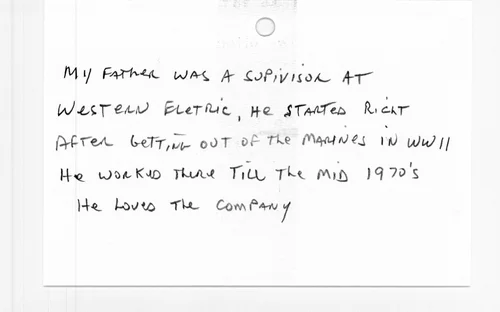 My Father was a Supivisor at
Western Eletric, He started Right
After Gettinc out of the Marines in WWII
He worked there Till The Mid 1970's
He Loved The Company